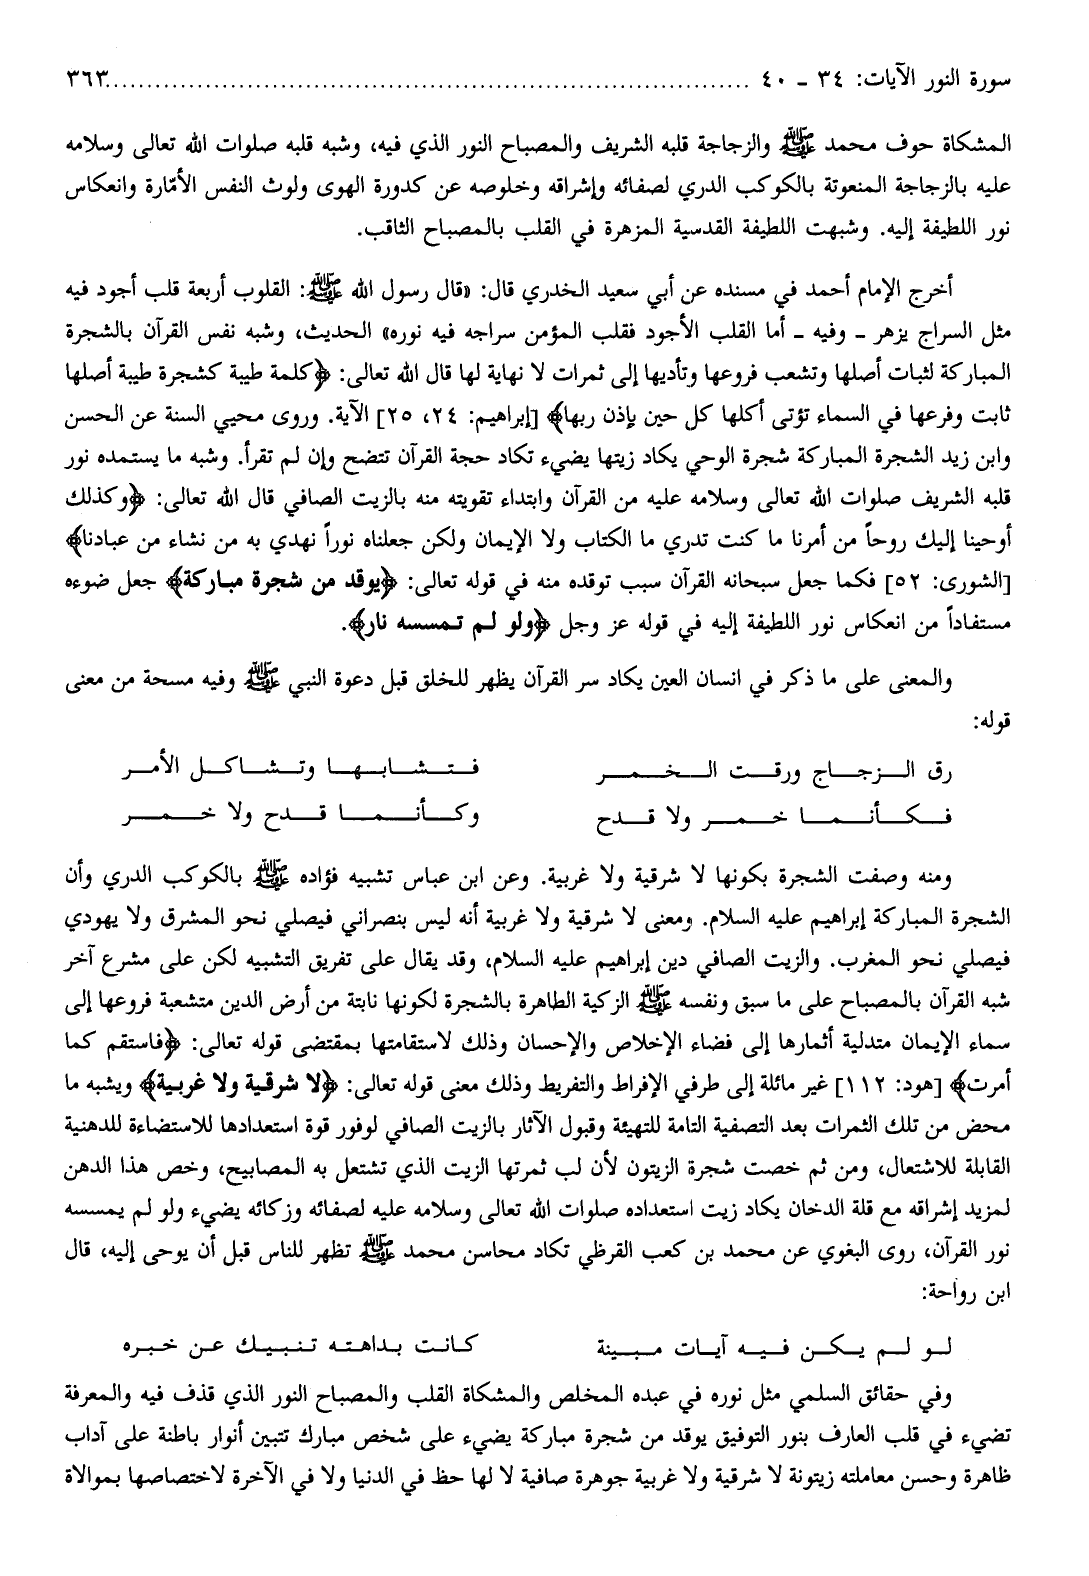 سورة النور الآيات: ٣٤ ـ ٤٠ ........................................................................... ٣٦٣
المشكاة حوف محمد ﷺ والزجاجة قلبه الشريف والمصباح النور الذي فيه، وشبه قلبه صلوات الله تعالى وسلامه
عليه بالزجاجة المنعوتة بالكوكب الدري لصفائه وإشراقه وخلوصه عن كدورة الهوى ولوث النفس الأمّارة وانعكاس
نور اللطيفة إليه. وشبهت اللطيفة القدسية المزهرة في القلب بالمصباح الثاقب.
أخرج الإمام أحمد في مسنده عن أبي سعيد الخدري قال: «قال رسول الله ﷺ: القلوب أربعة قلب أجود فيه
مثل السراج يزهر ـ وفيه ـ أما القلب الأجود فقلب المؤمن سراجه فيه نوره» الحديث، وشبه نفس القرآن بالشجرة
المباركة لثبات أصلها وتشعب فروعها وتأديها إلى ثمرات لا نهاية لها قال الله تعالى: ﴿كلمة طيبة كشجرة طيبة أصلها
ثابت وفرعها في السماء تؤتى أكلها كل حين بإذن ربها﴾ [إبراهيم: ٢٤، ٢٥] الآية. وروى محيي السنة عن الحسن
وابن زيد الشجرة المباركة شجرة الوحي يكاد زيتها يضيء تكاد حجة القرآن تتضح وإن لم تقرأ. وشبه ما يستمده نور
قلبه الشريف صلوات الله تعالى وسلامه عليه من القرآن وابتداء تقويته منه بالزيت الصافي قال الله تعالى: ﴿وكذلك
أوحينا إليك روحاً من أمرنا ما كنت تدري ما الكتاب ولا الإيمان ولكن جعلناه نوراً نهدي به من نشاء من عبادنا﴾
[الشورى: ٥٢] فكما جعل سبحانه القرآن سبب توقده منه في قوله تعالى: ﴿يوقد من شجرة مباركة﴾ جعل ضوءه
مستفاداً من انعكاس نور اللطيفة إليه في قوله عز وجل ﴿ولو لم تمسسه نار﴾.
والمعنى على ما ذكر في انسان العين يكاد سر القرآن يظهر للخلق قبل دعوة النبي ﷺ وفيه مسحة من معنى
قوله:
رق الزجاج ورقت الخمر فتشابها وتشاكل الأمر
فكأنما خمر ولا قدح وكأنما قدح ولا خمر
ومنه وصفت الشجرة بكونها لا شرقية ولا غربية. وعن ابن عباس تشبيه فؤاده ﷺ بالكوكب الدري وأن
الشجرة المباركة إبراهيم عليه السلام. ومعنى لا شرقية ولا غربية أنه ليس بنصراني فيصلي نحو المشرق ولا يهودي
فيصلي نحو المغرب. والزيت الصافي دين إبراهيم عليه السلام، وقد يقال على تفريق التشبيه لكن على مشرع آخر
شبه القرآن بالمصباح على ما سبق ونفسه ﷺ الزكية الطاهرة بالشجرة لكونها نابتة من أرض الدين متشعبة فروعها إلى
سماء الإيمان متدلية أثمارها إلى فضاء الإخلاص والإحسان وذلك لاستقامتها بمقتضى قوله تعالى: ﴿فاستقم كما
أمرت﴾ [هود: ١١٢] غير مائلة إلى طرفي الإفراط والتفريط وذلك معنى قوله تعالى: ﴿لا شرقية ولا غربية﴾ ويشبه ما
محض من تلك الثمرات بعد التصفية التامة للتهيئة وقبول الآثار بالزيت الصافي لوفور قوة استعدادها للاستضاءة للدهنية
القابلة للاشتعال، ومن ثم خصت شجرة الزيتون لأن لب ثمرتها الزيت الذي تشتعل به المصابيح، وخص هذا الدهن
لمزيد إشراقه مع قلة الدخان يكاد زيت استعداده صلوات الله تعالى وسلامه عليه لصفائه وزكائه يضيء ولو لم يمسسه
نور القرآن، روى البغوي عن محمد بن كعب القرظي تكاد محاسن محمد ﷺ تظهر للناس قبل أن يوحى إليه، قال
ابن رواحة:
لو لم يكن فيه آيات مبينة كانت بداهته تنبيك عن خبره
وفي حقائق السلمي مثل نوره في عبده المخلص والمشكاة القلب والمصباح النور الذي قذف فيه والمعرفة
تضيء في قلب العارف بنور التوفيق يوقد من شجرة مباركة يضيء على شخص مبارك تتبين أنوار باطنة على آداب
ظاهرة وحسن معاملته زيتونة لا شرقية ولا غربية جوهرة صافية لا لها حظ في الدنيا ولا في الآخرة لاختصاصها بموالاة